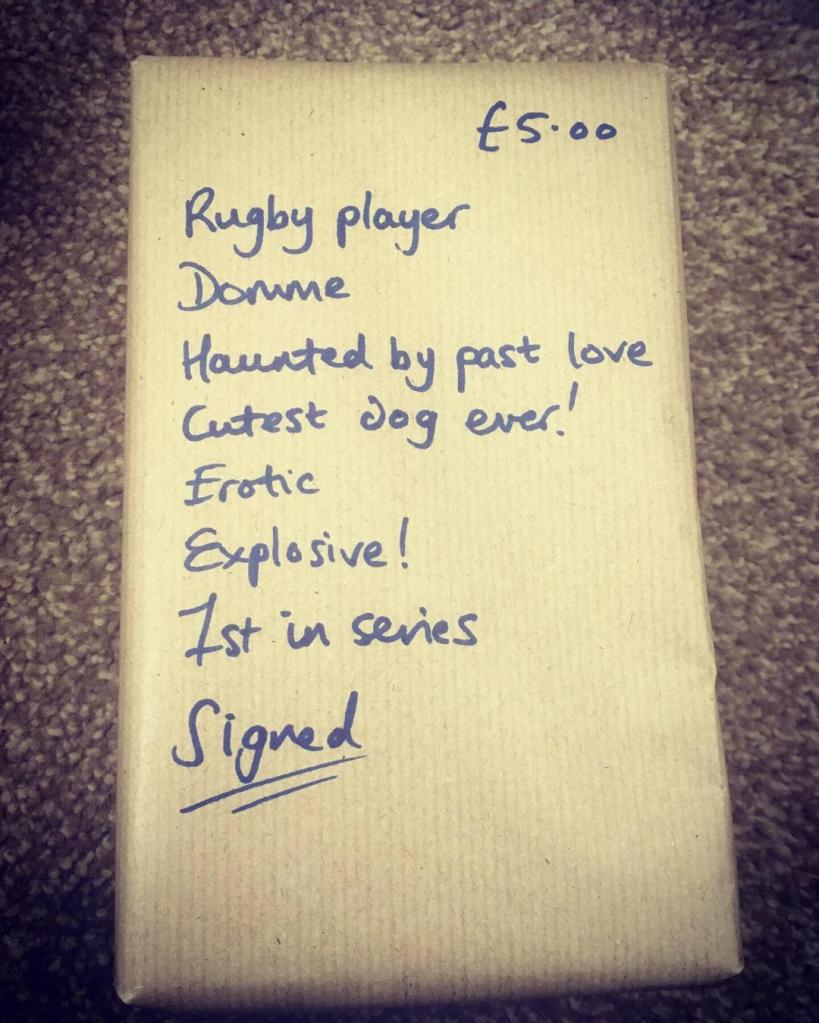 £5.00
Rugby player
Domme
Haunted by past love
Cutest dog ever!
Erotic
Explosive!
1st in series
Signed